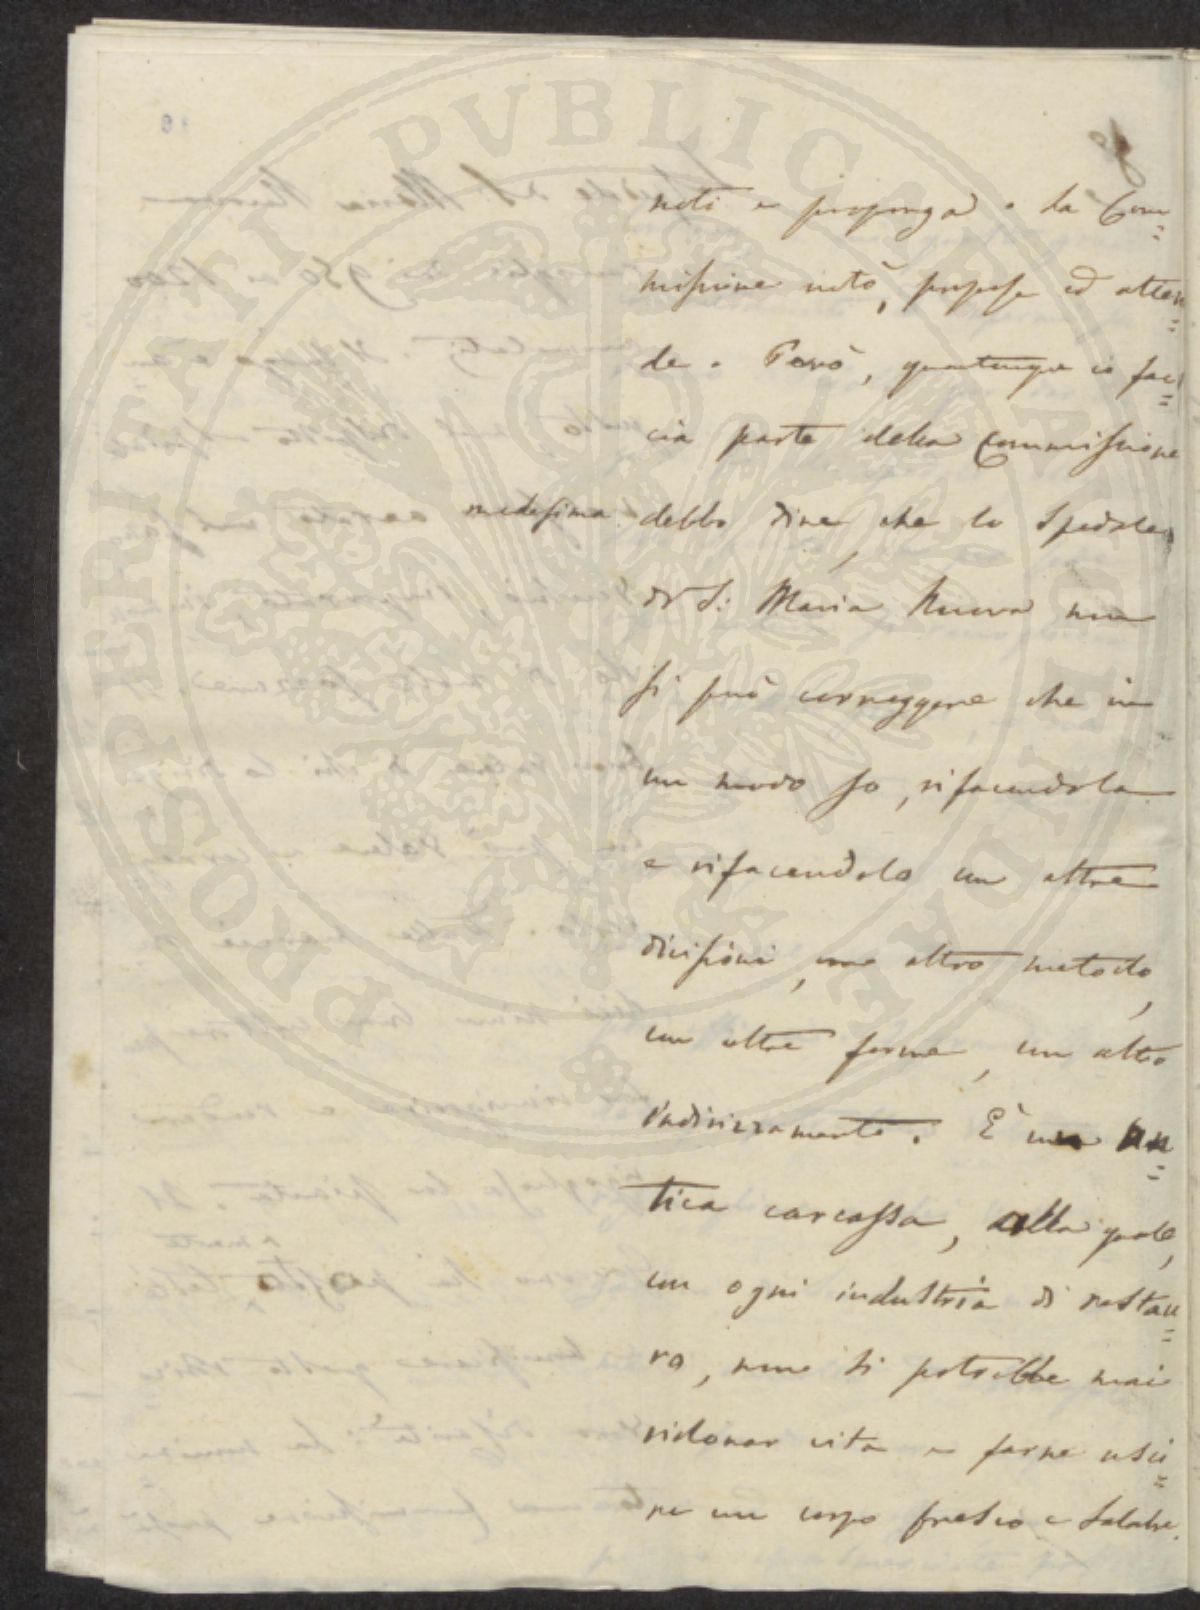 noti e proponga. La Com=
missione notò, propose ed atten=
de. Però, quantunque io fac=
cia parte della Commissione
medesima debbo dire, che lo Spedale
di S: Maria Nuova non
si può correggere che in
un modo so, rifacendola
e rifacendolo con altre
divisioni, con altro metodo,
con altre forme, con altro
indirizzamento. È una an=
tica carcassa, alla quale,
con ogni industria di restau=
ro, non si potrebbe mai
ridonar vita e farne usci=
re un corpo fresco e salubre.
PROSPERITATI PVBLICAE